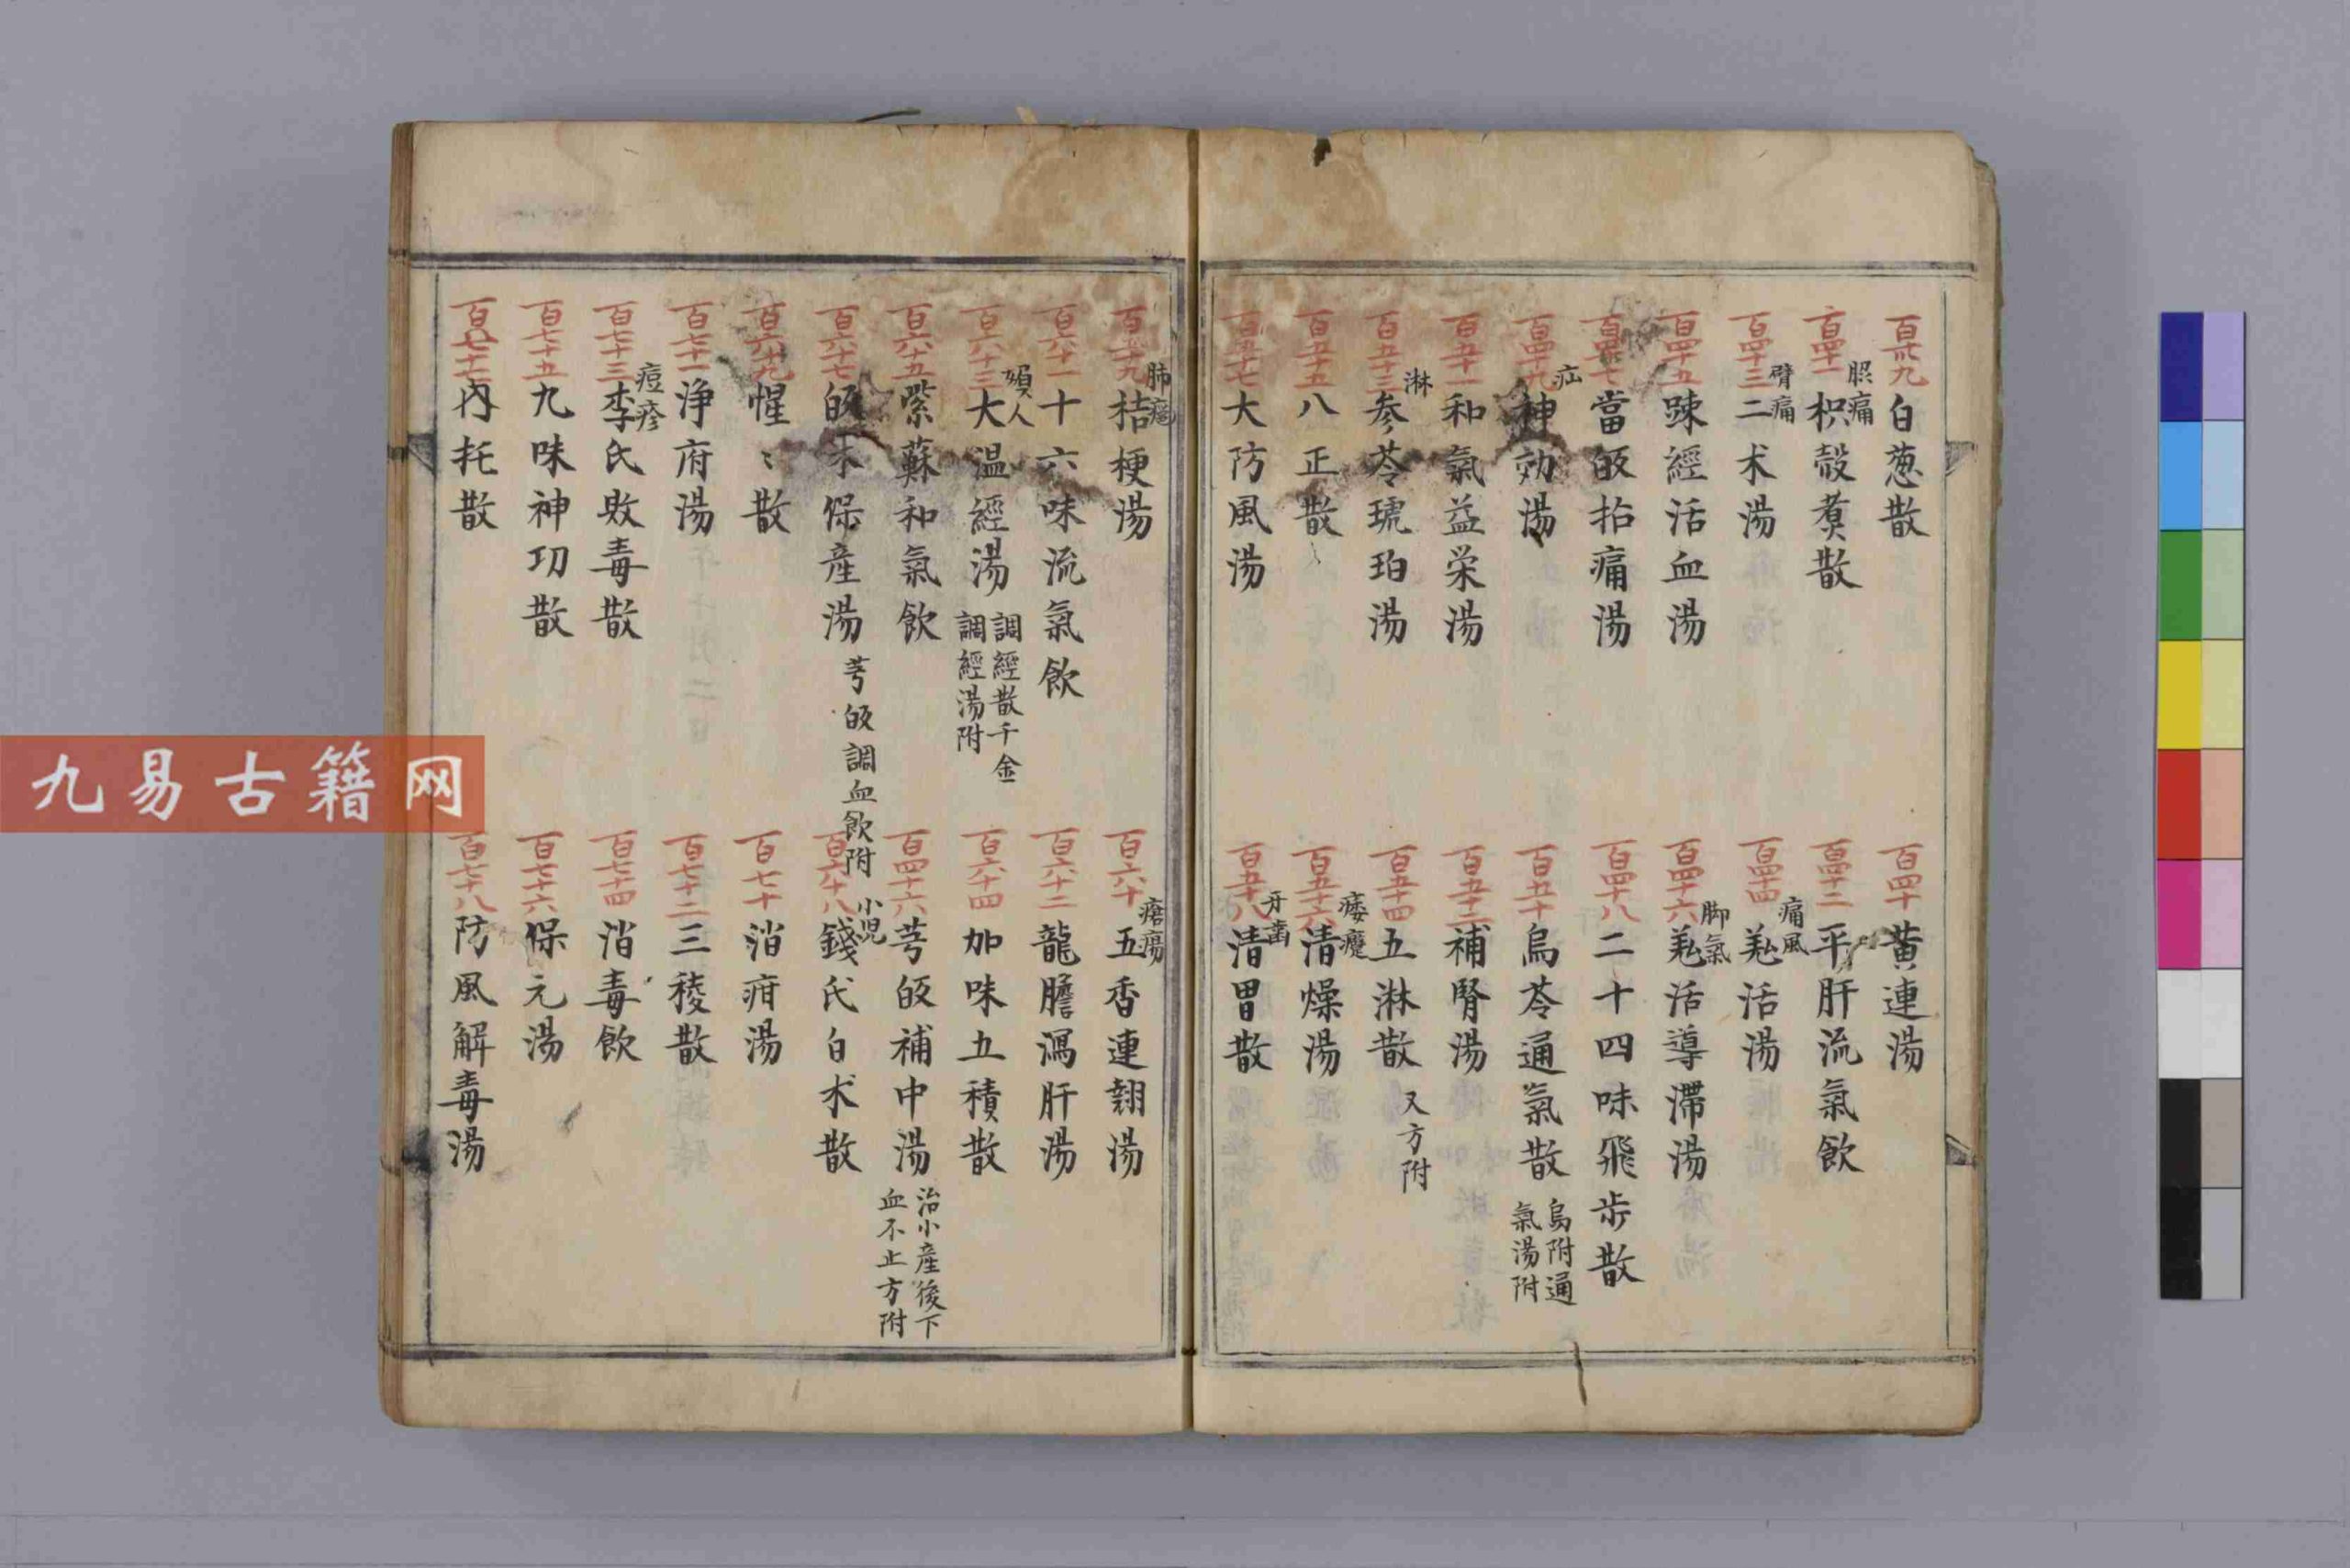 百卅九 白葱散
百四十 黄連湯
百四十一 枳殼煑散
百四十二 平肝流氣飲
臂痛
百四十三 二术湯
痛風
百四十四 羗活湯
百四十五 踈經活血湯
脚氣
百四十六 羗活導滯湯
百四十七 當皈拈痛湯
百四十八 二十四味飛步散
疝
百四十九 神効湯
百五十 烏苓通氣散 烏附通氣湯附
百五十一 和氣益栄湯
百五十二 補腎湯
淋
百五十三 参苓琥珀湯
百五十四 五淋散 又方附
百五十五 八正散
痿躄
百五十六 清燥湯
百五十七 大防風湯
牙齒
百五十八 清胃散
肺
百五十九 桔梗湯
瘡瘍
百六十 五香連翹湯
百六十一 十六味流氣飲
百六十二 龍膽瀉肝湯
人
百六十三 大温經湯 調經散千金調經湯附
百六十四 加味五積散
百六十五 紫蘇和氣飲
百四十六 芎皈補中湯 治小産後下血不止方附
百六十七 皈术保産湯 芎皈調血飲附
小児
百六十八 錢氏白术散
百六十九 惺〻散
百七十 消疳湯
百七十一 浄府湯
百七十二 三稜散
痘疹
百七十三 李氏敗毒散
百七十四 消毒飲
百七十五 九味神功散
百七十六 保元湯
百七十七 内托散
百七十八 防風解毒湯
九易古籍网